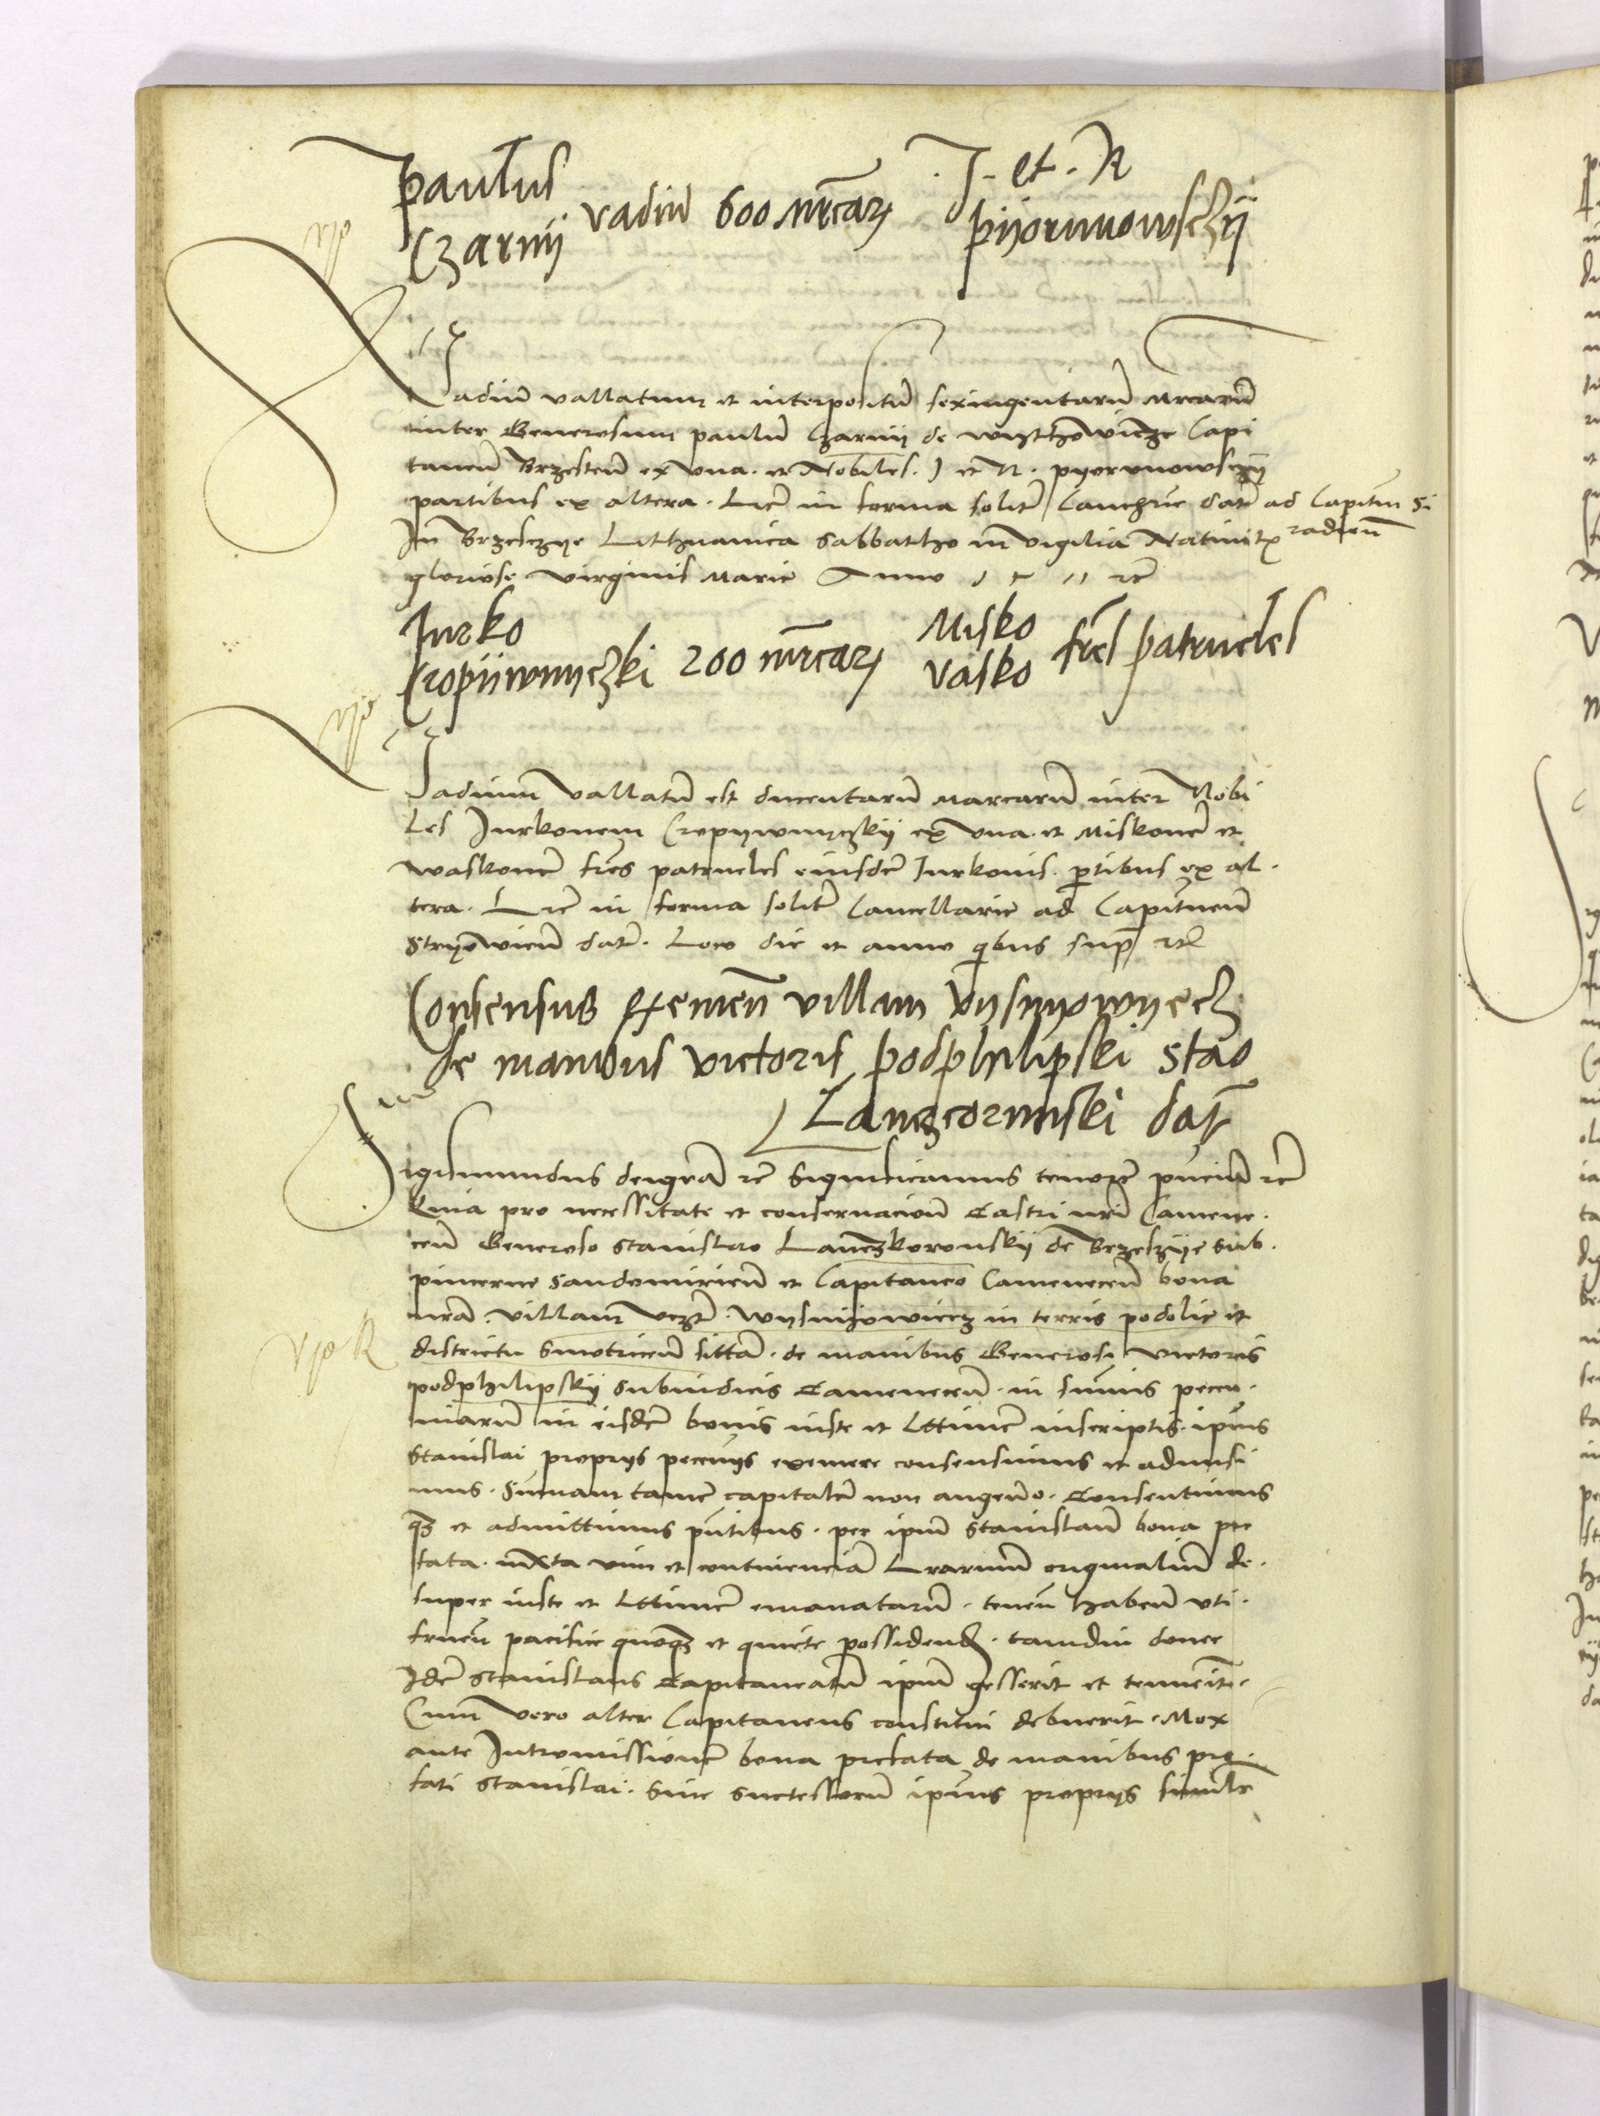 Paulus Czarnij vadiu 600 mrcar J. et. N pijorunowsczij
Vadiu vallatum et interpositu sexingentaru mrcaru
inter Generosum paulu Czarnij de Capi
taneu Brzesteu ex vna. et Nobiles. J et N. pyorunowsczij
partibus ex altera. Lre in forma solite Canczrie date ad Capitm Si
radieu
In Brzesczye Lithuanica Sabbatho in vigilia Natiuit
gloriose virginis Marie Anno rc
Jurko Cropijwnyczki 200 mrcar Misko Vasko fres patrueles
Vadium vallatu est ducentaru marcaru inter Nobi
les Jurkonem Cropywnyczkij ex vna. et Miskone et
waskone fres patrueles eiusde Jurkonis. ptibus ex al.
tera. Lre in forma solite Cancellarie ad Capitneu
date. Loco die et anno qbus sup rc
Consensus exemen villam Vysnyowyecz
de manibus victoris podphilipski Stao
Lanczcorunski dat
Sigismundus deigra rc Significamus tenore pnciu rc
Quia pro necessitate et conseruacione Castri nri Camene.
ceu Generoso Stanislao Lanczkoronskij de Brzeszije Sub.
pincerne Sandomirieu et Capitaneo Cameneceu bona
nra. villam vczt. wysnijowiecz in terris podolie et
districtu Smotriceu sitta. de manibus Generosi victoris
podphilipskij Subiudicis Cameneceu. in sumis pecu.
niaru in eisde bonis iuste et lttime inscriptis. ipius
Stanislai proprijs pecunijs exemere consensimus et admisi
mus. Sumam tame capitale non augendo. Consentimus
qz et admittimus pntibus. per ipm Stanislau bona pre
fata. iuxta vim et continencia lrarum originaliu de.
super iuste et lttime emanataru. teneu habeu vti.
frueu pacifice quoqz et quiete possidend. tamdiu donec
Ide Stanislaus Capitaneatu ipm gesserit et tenuerit.
Cum vero alter Capitaneus constitui debuerit. Mox
ante Intromissione bona prefata de manibus pre.
fati Stanislai. Siue Successoru ipius proprijs simile